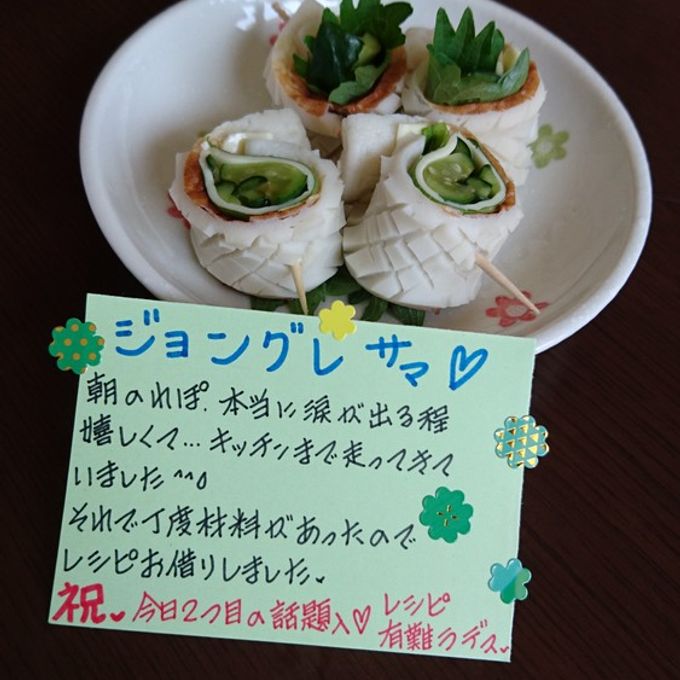 ジョングレ サマ♡
朝のれぽ、本当に涙が出る程
嬉しくて…キッチンまで走ってきて
いました^^。
それで丁度材料があったので
レシピお借りしました。
祝 今日2つ目の話題入♡ レシピ
有難ラデス